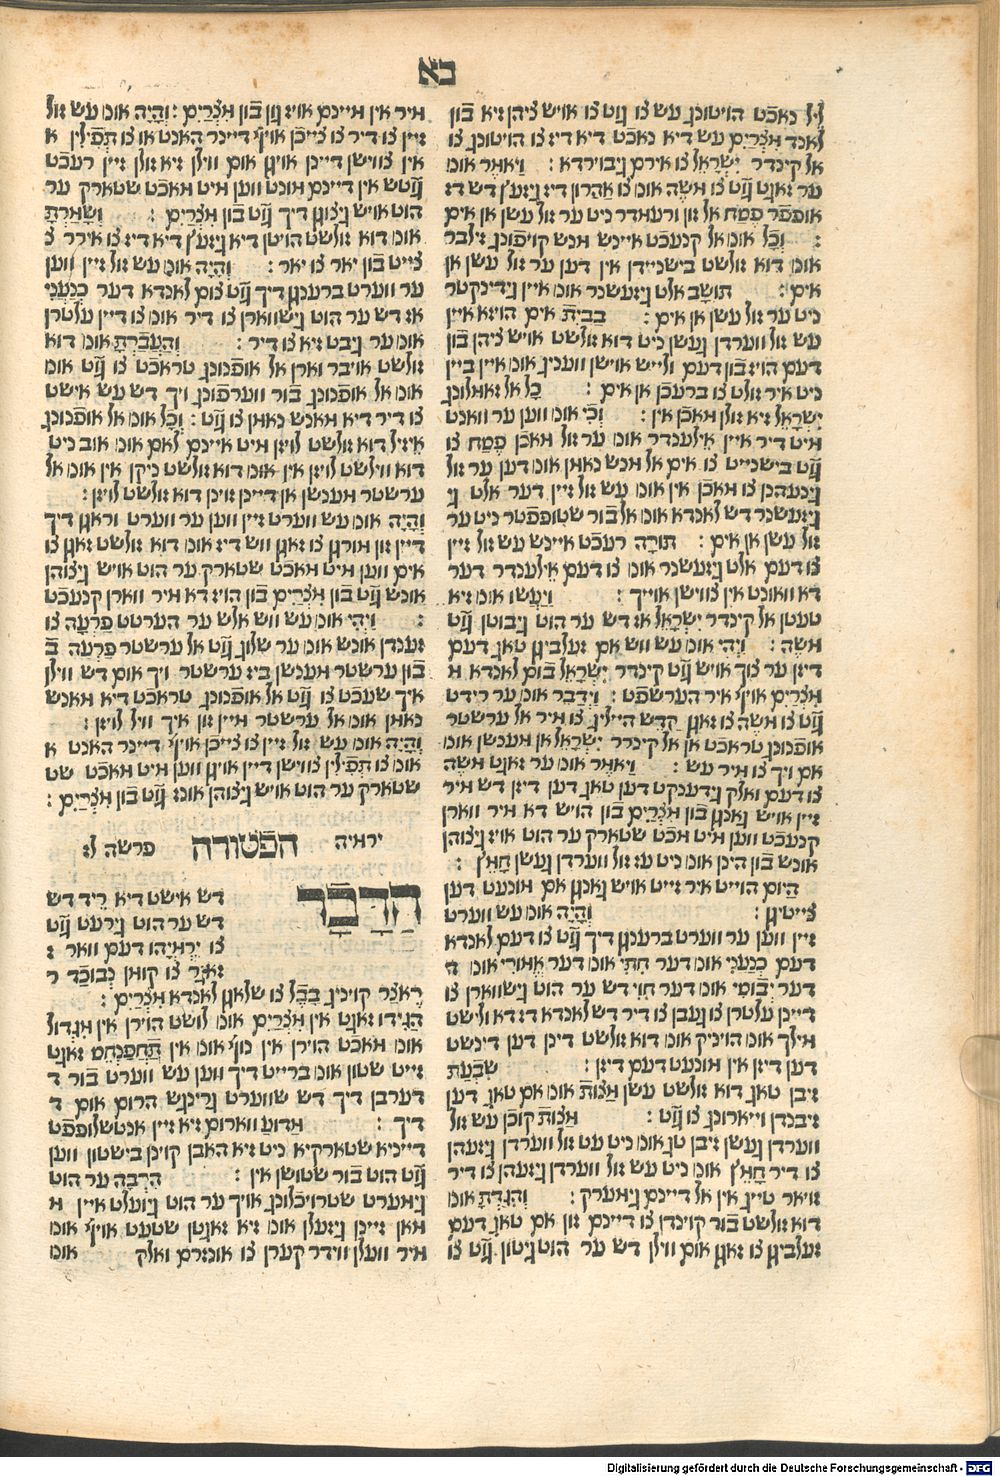 בא
ליל נאכֿט הויטונק עש צו גוט צו אויש ציהן זיא בֿון
לאנד מִצְרַיִם עש דיא נאכֿט דיא דיז צו הויטונק צו
אל קינדר יִשְׂרָאֵל צו אירם גיבוירדא : וַיֹאמֶר אונ
ער זאגט גוֹט צו מֹשֶה אונ צו אַהֲרֹון דיז גיזעץ דש דז
אופפֿר פֶסַח אל זון ורעמדר ניט ער זול עשן אן אים
: וְכָל אונ אל קנעכֿט איינש מנש קויפֿונק זילבר
אונ דוא זולשט בישניידן אין דען ער זול עשן אן
אים : תושָב אלט גיזעשנר אונ איין גידינקטר
ניט ער זול עשן אן אים : בְבַיִת אים הויזא איין
עש זול ווערדן געשן ניט דוא זולשט אויש ציהן בֿון
דעם הויז בֿון דעם ולייש אוישן וועניק אונ איין ביין
ניט איר זולט צו ברעכֿן אן אים : כָל אל זאמלונק
יִשְרָאֵל זיא זולן מאכֿן אין : וְכִי אונ ווען ער וואנט
מיט דיר איין אֵילענדר אונ ער זול מאכֿן פֶסַח צו
גוֹט בישנייט צו אים אל מנש נאמן אונ דען ער זול
גינעהנן צו מאכֿן אין אונ עש זול זיין דער אלט גי
גיזעשנר דש לאנדא אונ אל בֿור שטופפֿטר ניט ער
זול עשן אן אים : תורָה רעכֿט איינש עש זול זיין
צו דעם אלט גיזעשנר אונ צו דעם אֵילענדר דער
דא וואונט אין צווישן אוייך : וַיַעֲשו אונ זיא
טעטן אל קינדר יִשְרָאֵל אז דש ער הוט גיבוטן גוֹט
מֹשֶה : וַיְהִי אונ עש וואש אים זעלביגן טאג דעם
דיזן ער צוך אויש גוֹט קינדר יִשְרָאֵל בֿום לאנדא מ
מִצְרַיִם אויף איר הערשפֿט : וַיְדַבֵר אונ ער רידט
גוֹט צו מֹשֶה צו זאגן קַדֶש היילינ צו מיר אל ערשטר
אופֿנונק טראכֿט אן אל קינדר יִשְרָאֵל אן מענשן אונ
אם ויך צו מיר עש : וַיֹאמֶר אונ ער זאגט מֹשֶה
צו דעם ואלק גידענקט דען טאג דעם דיזן דש איר
זיין אויש גאנגן בֿון מִצְרַיִם בֿון הויש דא איר ווארן
קנעכֿט ווען מיט מכֿט שטארק ער הוט אויז גיצוהן
אונש בֿון הינן אונ ניט עז זול ווערדן געשן חָמֵץ :
הַיֹום הוייט איר זייט אויש גאנגן אם מונעט דען
צייטיגן : וְהָיָה אונ עש ווערט
זיין ווען ער ווערט ברענגן דיך גוֹט צו דעם לאנדא
דעם כְנַעֲנִי אונ דער חִתִי אונ דער אֱמֹורִי אונ ד
דער יְבוּסִי אונ דער חִוִי דש ער הוט גישווארן צו
דיינן עלטרן צו געבן צו דיר דש לאנדא דז דא ולישט
מילך אונ הויניק אונ דוא זולשט דינן דען דינשט
דען דיזן אין מונעט דעם דיזן : שִבְעַת
זיבן טאג דוא זולשט עשן מַצות אונ אם טאג דען
זיבנדן וייארונק צו גוֹט : מַצות קוכֿן עש זול
ווערדן געשן זיבן טג אונ ניט עט זול ווערדן גיזעהן
צו דיר חָמֵץ אונ ניט עש זול ווערדן גיזעהן צו דיר
זויאר טייג אין אל דיינם גימערק : וְהִגַדְתָ אונ
דוא זולשט בֿור קוינדן צו דיינם זון אם טאג דעם
זעלביגן צו זאגן אום ווילן דש ער הוט גיטון גוֹט צו
מיר אין מיינם אויז גון בֿון מִצְרַיִם : וְהָיָה אונ עש זול
זיין צו דיר צו צייכֿן אויף דיינר האנט או צו תְפִילִין א
אין צווישן דיינן אויגן אום ווילן זיא זולן זיין רעכֿט
גוֹטש אין דיינם מונט ווען מיט מאכֿט שטארק ער
הוט אויש גיצוגן דיך גוֹט בֿון מִצְרַיִם : וְשָמַרְתָ
אונ דוא זולשט הויטן דיא גיזעץ דיא דיז צו אירר צ
צייט בֿון יאר צו יאר : וְהָיָה אונ עש זול זיין ווען
ער ווערט ברענגן דיך גוֹט צום לאנדא דער כְנַעֲנִי
אז דש ער הוט גישווארן צו דיר אונ צו דיין עלטרן
אונ ער גיבט זיא צו דיר : וְהַעֲבַרְתָ אונ דוא
זולשט אויבר וארן אל אופֿנונק טראכֿט צו גוֹט אונ
אונ אל אופֿנונק בֿור ווערפֿונק ויך דש עש אישט
צו דיר דיא מאנש נאמן צו גוֹט : וְכָל אונ אל אופֿנונק
אֵיזיל דוא זולשט לויזן מיט איינם לאם אונ אוב ניט
דוא ווילשט לויזן אין אונ דוא זולשט ניקן אין אונ אל
ערשטר מענשן אן דיינן זוינן דוא זולשט לויזן :
וְהָיָה אונ עש ווערט זיין ווען ער ווערט וראגן דיך
דיין זון מורגן צו זאגן ווש דיז אונ דוא זולשט זאגן צו
אים ווען מיט מאכֿט שטארק ער הוט אויש גיצוהן
אונש גוֹט בֿון מִצְרַיִם בֿון הויז דא מיר ווארן קנעכֿט
: וַיְהִי אונ עש ווש אלש ער הערטט פַרְעֹה צו
זענדן אונש אונ ער שלוג גוֹט אל ערשטר פַרְעֹה בֿ
בֿון ערשטר מענשן ביז ערשטר ויך אום דש ווילן
איך שעכֿט צו גוֹט אל אופֿנונק טראכֿט דיא מאנש
נאמן אונ אל ערשטר מיין זון איך וויל לויזן :
וְהָיָה אונ עש זול זיין צו צייכֿן אויף דיינר האנט א
אונ צו תְפִילִין צווישן דיין אויגן ווען מיט מאכֿט שט
שטארק ער הוט אויש גיצוהן אונז גוֹט בֿון מִצְרַיִם :
ירמיה הפטורה פרשה לז
הַדָבָר דש אישט דיא רֵיד דש
דש ער הוט גירעט גוֹט
צו יִרְמְיָהו דעם וואר ז
זאגר צו קומן נְבוכַד ר
רֶאצַר קויניג בָבֶל צו שלאגן לאנדא מִצְרַיִם :
הַגִידו זאגט אין מִצְרַיִם אונ לושט הוירן אין מִגְדול
אונ מאכֿט הוירן אין נוף אונ אין תַחְפַנְחֵס זאגט
זייט שטון אונ ברייט דיך ווען עש ווערט בֿור ד
דערבן דיך דש שווערט גרינגש הרום אום ד
דיך : מַדועַ ווארום זיא זיין אנטשלופפֿט
דייניא שטארקיא ניט זיא האבן קוינן בישטון ווען
גוֹט הוט בֿור שטושן אין : הִרְבָה ער הוט
גימערט שטרויכֿלונק אויך ער הוט גיוועלט איין מ
מאן זיינן גיזעלן אונ זיא זאגטן שטעט אויף אונ
מיר וועלן ווידר קערן צו אונזרם ואלק אונ
Digitalisierung gefördert durch die Deutsche Forschungsgemeinschaft - DFG